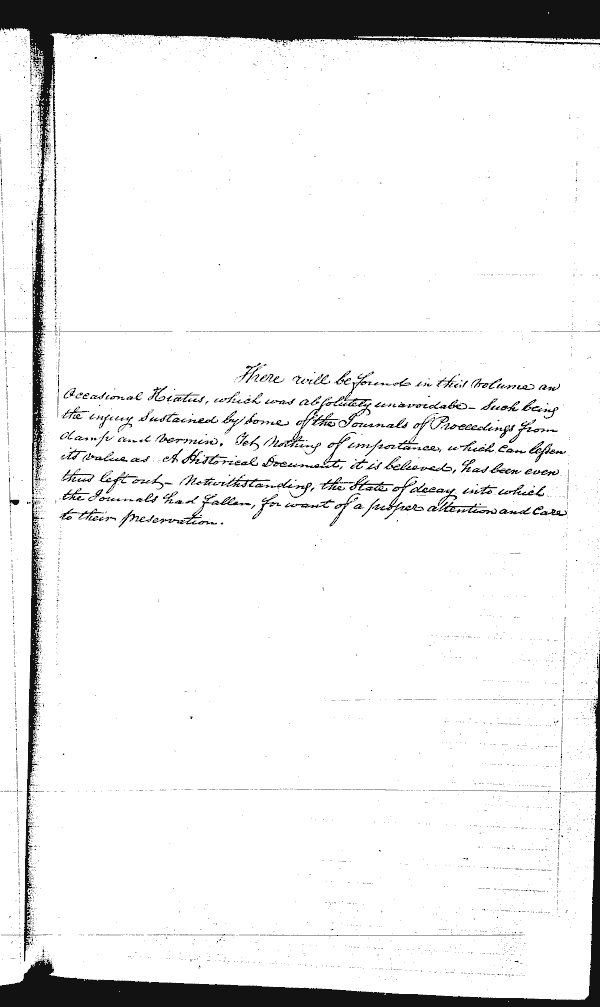 There will be found in this Volume an
Occasional Hiatus, which was absolutely unavoidabe - Such being
the injury Sustained by Some of the Journals of Proceedings from
damp and vermin. Yet Nothing of importance, which Can lessen
its value as A Historical Document, it is believed, has been even
thus left out - Notwithstanding, the State of decay into which
the Journals had fallen, for want of a proper attention and Care
to their preservation.